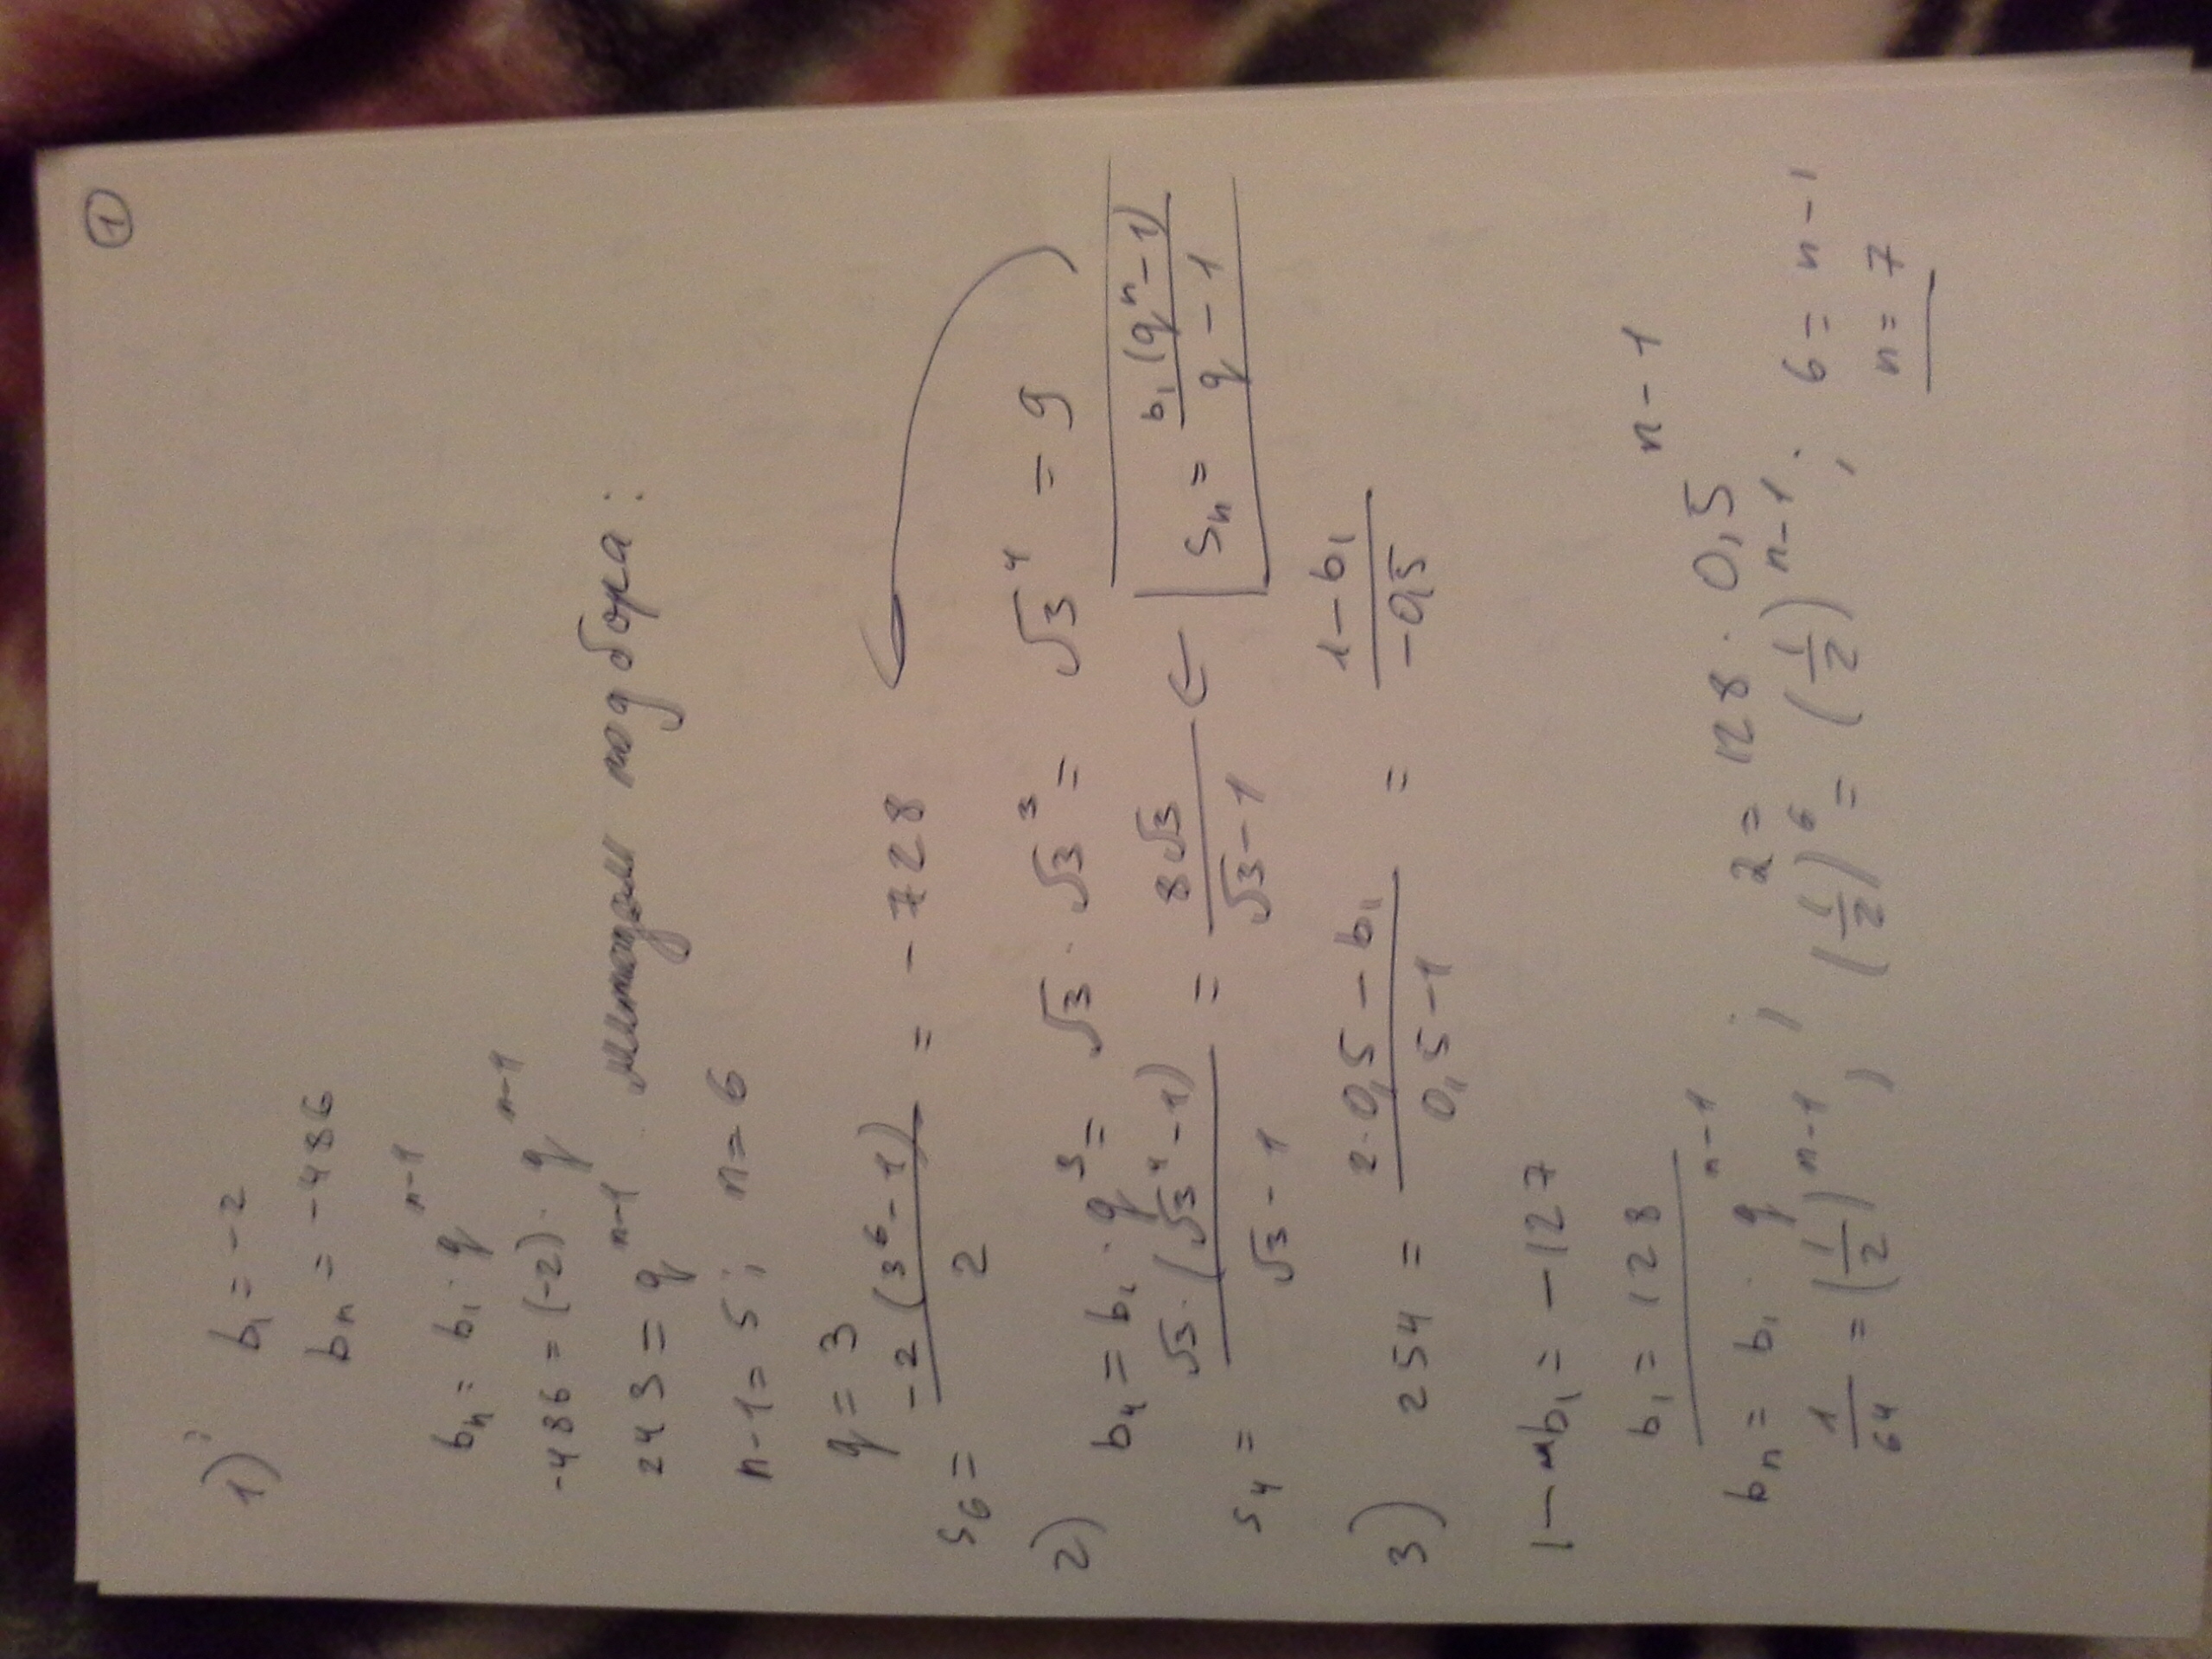 ①
1) b₁ = -2
bₙ = -486
bₙ = b₁ · qⁿ⁻¹
-486 = (-2) · qⁿ⁻¹
243 = qⁿ⁻¹ методом подбора:
n-1 = 5; n = 6
q = 3
S₆ = -2(3⁶-1)/2 = -728
2) b₄ = b₁ · q³ = √3 · √3³ = √3⁴ = 9
S₄ = √3 · (√3⁴-1)/(√3-1) = 8√3/(√3-1) ← Sₙ = b₁(qⁿ-1)/(q-1)
3) 254 = (2·0,5 - b₁)/(0,5-1) = (1-b₁)/(-0,5)
1-b₁ = -127
b₁ = 128
bₙ = b₁ · qⁿ⁻¹; 2 = 128 · 0,5ⁿ⁻¹
1/64 = (1/2)ⁿ⁻¹; (1/2)⁶ = (1/2)ⁿ⁻¹; 6 = n-1
n = 7